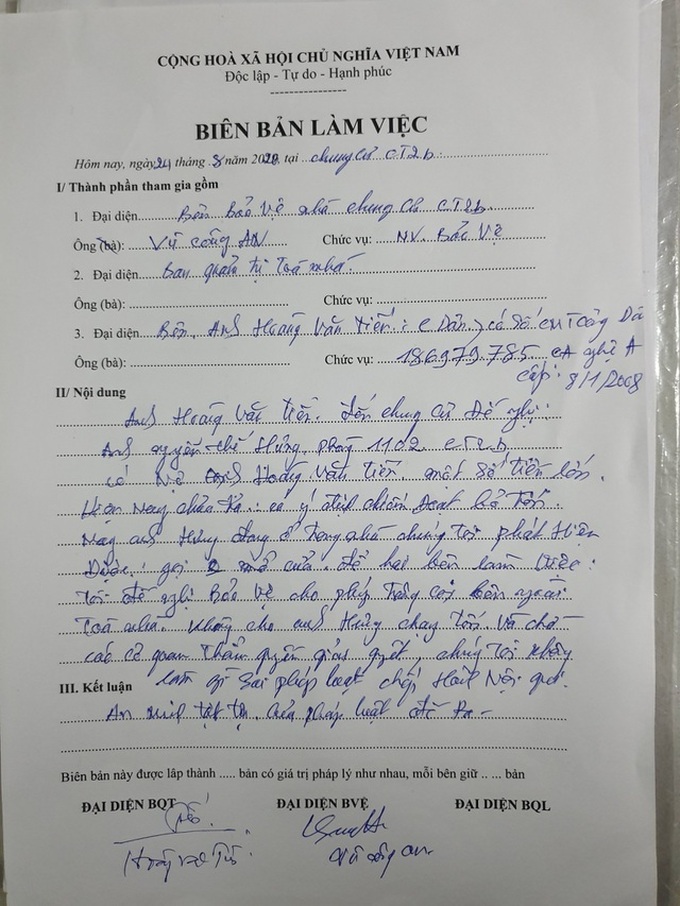 CỘNG HOÀ XÃ HỘI CHỦ NGHĨA VIỆT NAM
Độc lập - Tự do - Hạnh phúc
----------------
BIÊN BẢN LÀM VIỆC
Hôm nay, ngày 24 tháng 8 năm 2020, tại chung cư CT2b
I/ Thành phần tham gia gồm
1. Đại diện Bên Bảo Vệ nhà chung cư CT2b
Ông (bà): Vũ Công AN Chức vụ: NV. Bảo Vệ
2. Đại diện ban quản trị Toà nhà.
Ông (bà): Chức vụ:
3. Đại diện Bên, Anh Hoàng Văn Tiến: có số CMT
Ông (bà): Chức vụ: 186979.785 CA nghệ A
cấp: 8/1/2008
II/ Nội dung
Anh Hoàng Văn Tiến. Đến chung cư Đề nghị:
Anh nguyễn thế Hùng, phòng 1102 CT2b
có Nợ Hoàng Văn Tiến. một số tiền lớn.
Hiện Nay chưa trả. có ý định chiếm Đoạt bỏ trốn.
Nay anh Hưng đang ở trong nhà chúng tôi phát Hiện
Được. gọi mở cửa. để hai bên làm việc.
Tôi đề nghị Bảo Vệ cho phép bên ngoài
Toà nhà. không cho anh Hưng chạy trốn. và chờ
các cơ quan Thẩm quyền giải quyết, chúng tôi không
làm gì sai pháp luật
III. Kết luận
An pháp luật đề Ra -
Biên bản này được lâp thành ..... bản có giá trị pháp lý như nhau, mỗi bên giữ .. ... bản
ĐẠI DIỆN BQT ĐẠI DIỆN BVỆ ĐẠI DIỆN BQL
Vũ công an